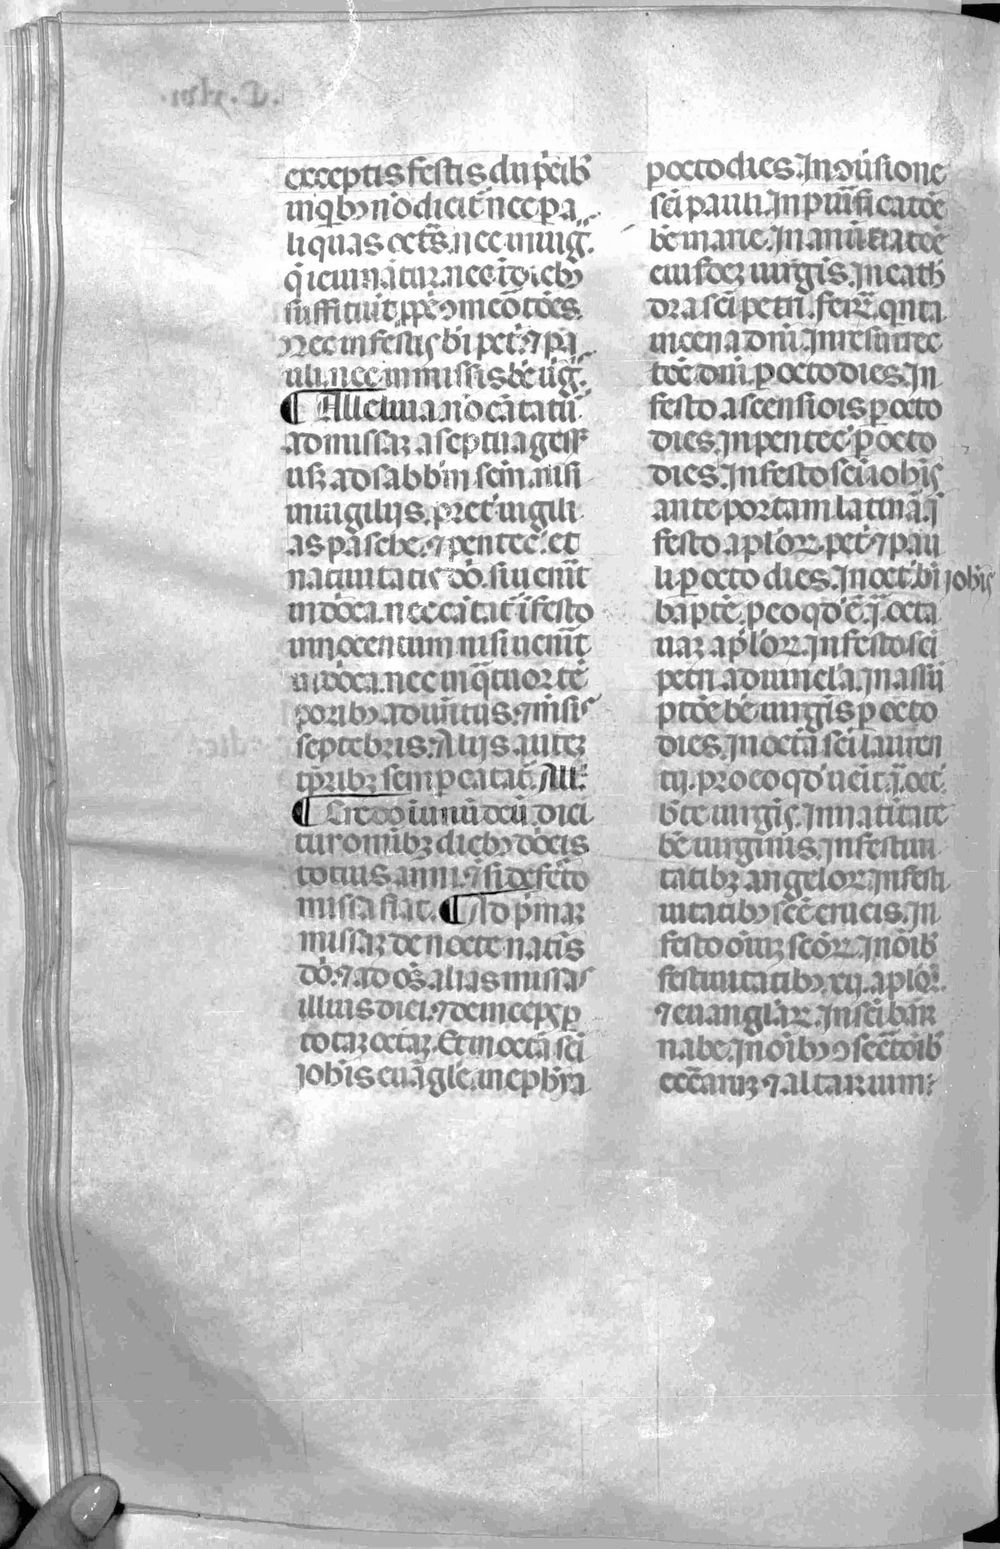 exceptis festis duplicib'
in qb' nō dicit̄ nec p̱ a
liquas oct̄s. nec in uiḡ.
q̄ ieiunātur. nec
suffitiūt.
nec in festis bi pet̓ ⁊ pa
uli. nec in missis bē uḡ.
¶ Alleluia nō cātatū
ad missaꝫ a septuagess̄
usꝫ ad sabbm̄ scm̄. nisi
in uigiliis. p̄ret̓ uigili
as pasche. ⁊ pentec̄. et
natiuitatis dō. si uenit̄
in dōca. nec cātat̄ ī festo
innocentum nisi uenit̄
in dōca. nec in q̄tuor tē
porib' aduentus. ⁊ mēsis
septēbris. Aliis autēꝫ
tp̄ribꝫ semp̱ cātat̄. All̄.
¶ Credo ī unū deū. dici
tur omnibꝫ dieb' dōcis
totius anni. ⁊ si de festo
missa fiat. ¶ Ad p̄maꝫ
missaꝫ de nocte natis
dō. ⁊ ad oēs alias missas
illius diei. ⁊ deinceps p̱
totaꝫ octaꝫ. Et in octā sci
iohis euāgle. in ephyia
p̱ octo dies. In ꝯuersione
sci pauli. In purificatōe
bē marie. In anūtiatōe
eiusdeꝫ uirgīs. In cath
dra sci petri. feria qnta
in cena dni. In resurrec
tōe dni. p̱ octo dies. In
festo ascensiōis p̱ octo
dies. In pentec̄. p̱ octo
dies. In festo sci iohis
ante portam latinā. ī
festo aplōꝝ pet̓ ⁊ pau
li p̱ octo dies. In oct̄. bi iohis
bapte. p̱ eo qd' ē ī. octa
uaꝫ aplōꝝ. In festo sci
petri ad uincla. In assū
ptōe bē uirgīs p̱ octo
dies. In octā sci lauren
tij. pro eo qd' uenit ī. oct̄.
bte uirgīs. In natiuitate
bē uirginis. In festiui
tatibꝫ angeloꝝ. In festi
uitatib' scē crucis. In
festo oīuꝫ scōꝝ. In oīb'
festiuitatib' xij. aplōꝝ.
⁊ euanglaꝝ. In sci bar
nabe. In oīb' ꝯsec̄toib'
ecc̄aruꝫ ⁊ altarium: